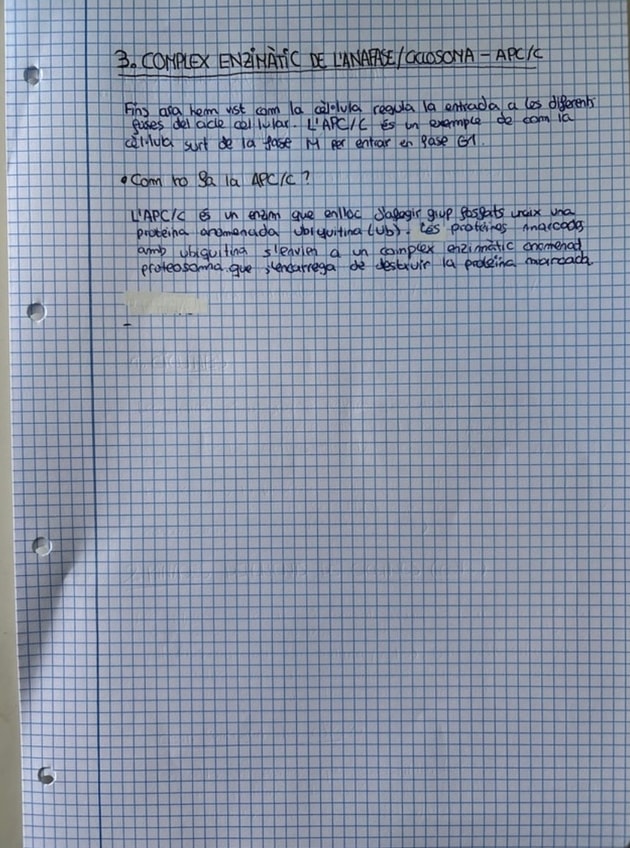 3. COMPLEX ENZIMÀTIC DE L'ANAFASE/CICLOSOMA - APC/C
Fins ara hem vist com la cèl·lula regula la entrada a les diferents
fases del cicle cel·lular. L'APC/C és un exemple de com la
cèl·lula surt de la fase M per entrar en fase G1.
• Com ho fa la APC/C?
L'APC/C és un enzim que enlloc d'afegir grup fosfats uneix una
proteïna anomenada ubiquitina (Ub). Les proteïnes marcades
amb ubiquitina s'envien a un complex enzimàtic anomenat
proteosoma que s'encarrega de destruir la proteïna marcada
-